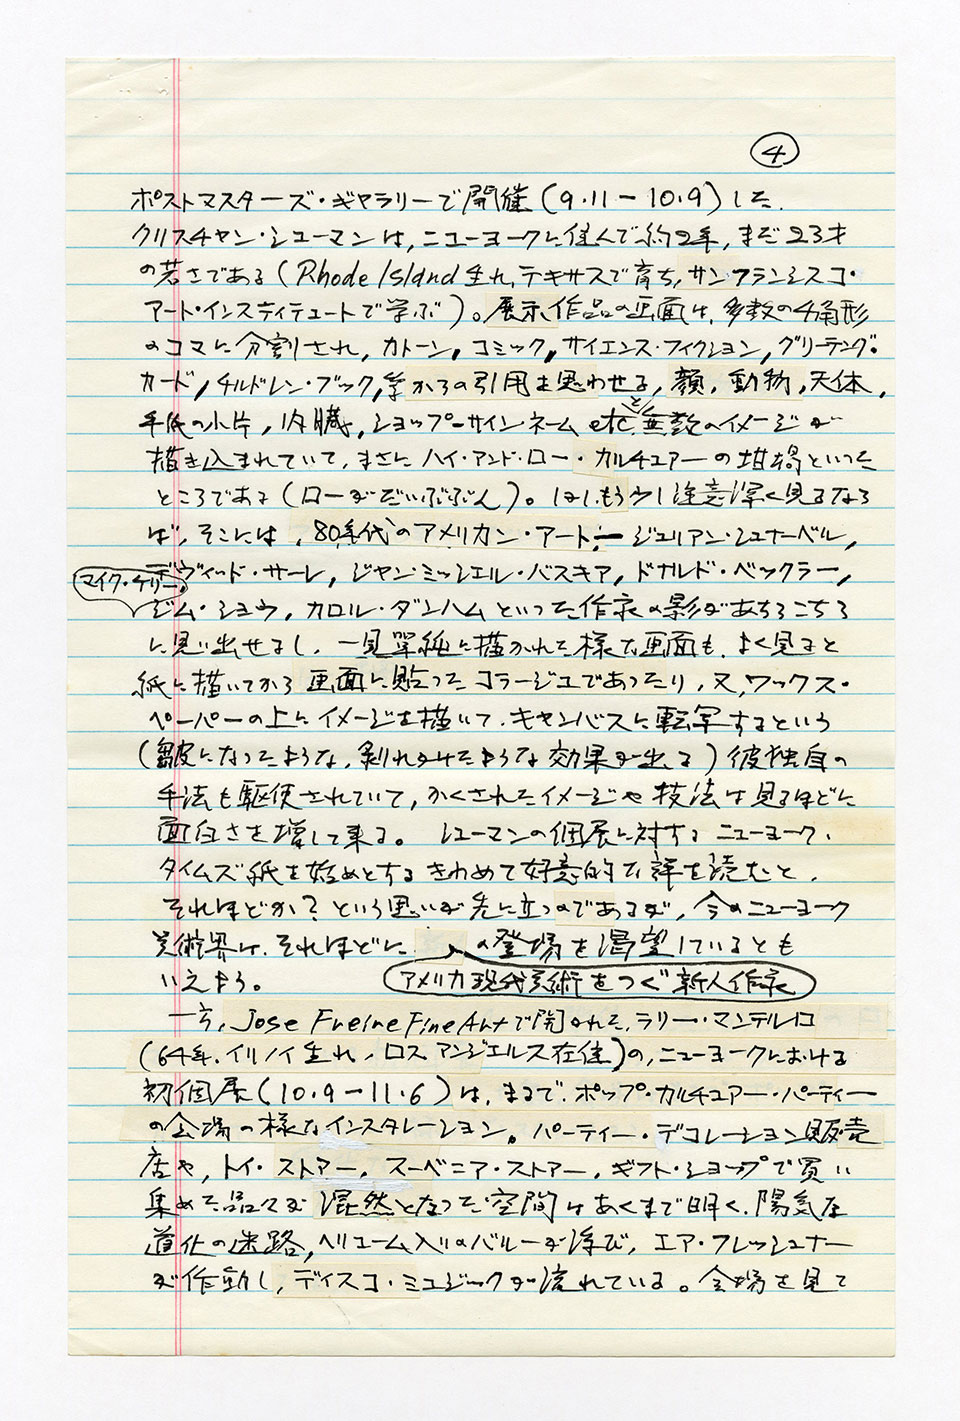 ④
ポストマスターズ・ギャラリーで開催(9.11ー10.9)した
クリスチャン・シューマンは,ニューヨークに住んで約2年,まだ23才
の若さである(Rhode Island生れ,テキサスで育ち,サンフランシスコ・
アート・インスティテュートで学ぶ)。展示作品の画面は,多数の4角形
のコマに分割され,カトーン,コミック,サイエンス・フィクション,グリーテング・
カード,チルドレン・ブック,等からの引用を思わせる,顔,動物,天体,
手紙の小片,内臓,ショップーサイン・ネーム etc.と無数のイメージが
描き込まれていて,まさにハイ・アンド・ロー・カルチュアーの坩堝といった
ところである(ローがだいぶぶん)。はし,もう少し注意深く見るなら
ば,そこには,80年代のアメリカン・アートーージュリアン・シュナーベル,
デヴィッド・サーレ,ジャン・ミッシェル・バスキア,ドナルド・ベックラー,
マイク・ケリー,
ジム・ショウ,カロル・ダンハムといった作家の影があちらこちら
に見い出せるし,一見単純に描かれた様な画面も,よく見ると
紙に描いてから画面に貼ったコラージュであったり,又,ワックス・
ペーパーの上にイメージを描いて,キャンバスに転写するという
(皺になったような,剥れかけたような効果が出る)彼独自の
手法も駆使されていて,かくされたイメージや技法は見るほどに
面白さを増して来る。シューマンの個展に対するニューヨーク・
タイムズ紙を始めとするきわめて好意的な評を読むと,
それほどか?という思いが先に立つのであるが,今のニューヨーク
美術界は,それほどに の登場を渇望しているとも
アメリカ現代美術をつぐ新人作家
いえよう。
一方,Jose Freire Fine Artで開かれた,ラリー・マンテルロ
(64年,イリノイ生れ,ロスアンジェルス在住)の,ニューヨークにおける
初個展(10.9ー11.6)は,まるで,ポップ・カルチュアー・パーティー
の会場の様なインスタレーション。パーティー・デコレーション販売
店や,トイ・ストアー,スーベニア・ストアー,ギフト・ショップで買い
集めた品々が混然となった空間はあくまで明く,陽気な
道化の迷路,ヘリューム入りのバルーンが浮び,エア・フレッシュナー
が作動し,ディスコ・ミュジックが流れている。会場を見て